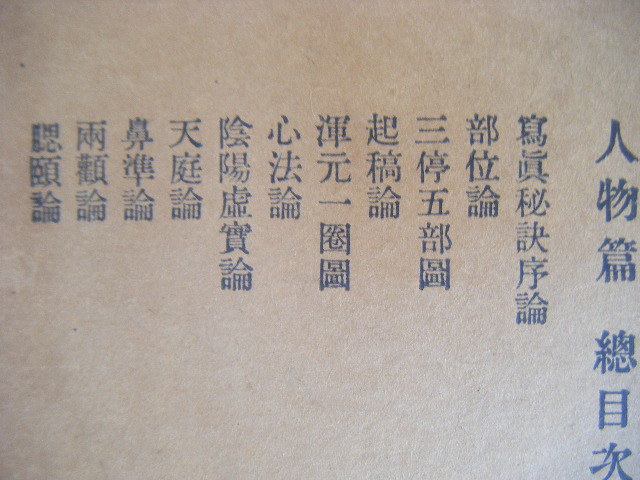 人物篇 總目次
寫眞秘訣序論
部位論
三停五部圖
起稿論
渾元一圈圖
心法論
陰陽虛實論
天庭論
鼻準論
兩顴論
腮頤論